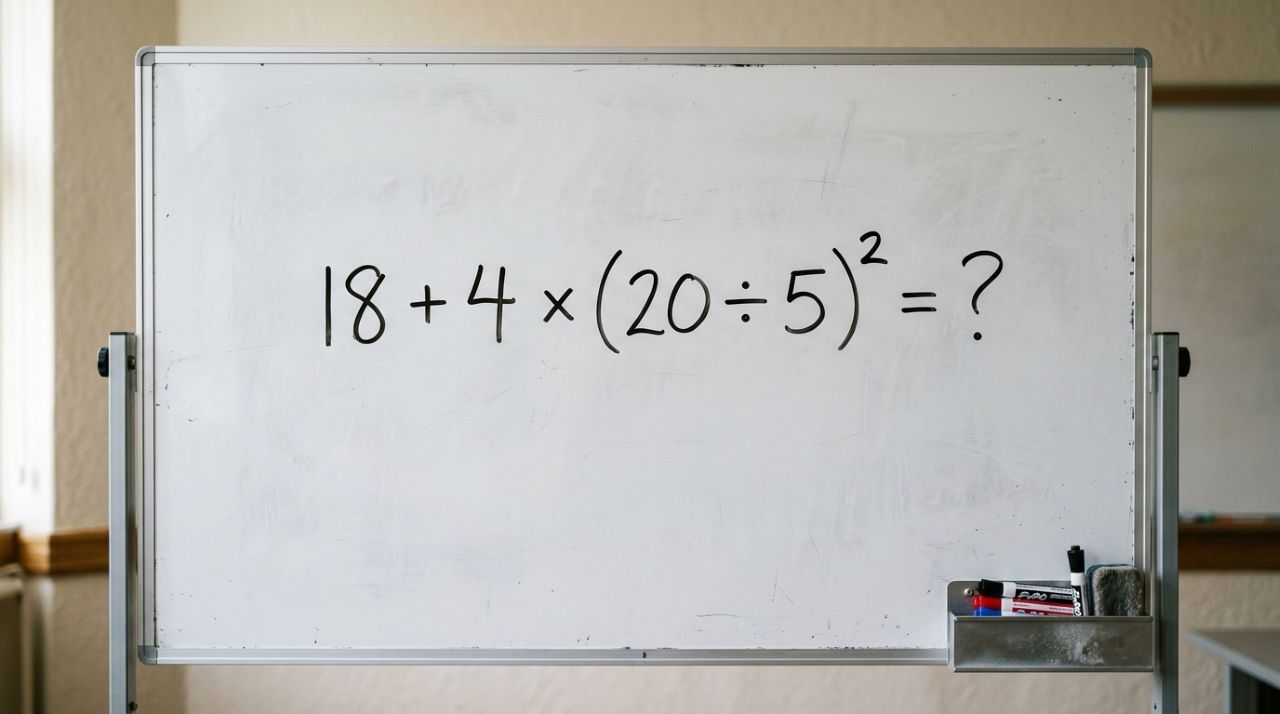 18 + 4 × (20 ÷ 5)² = ?
EXPO